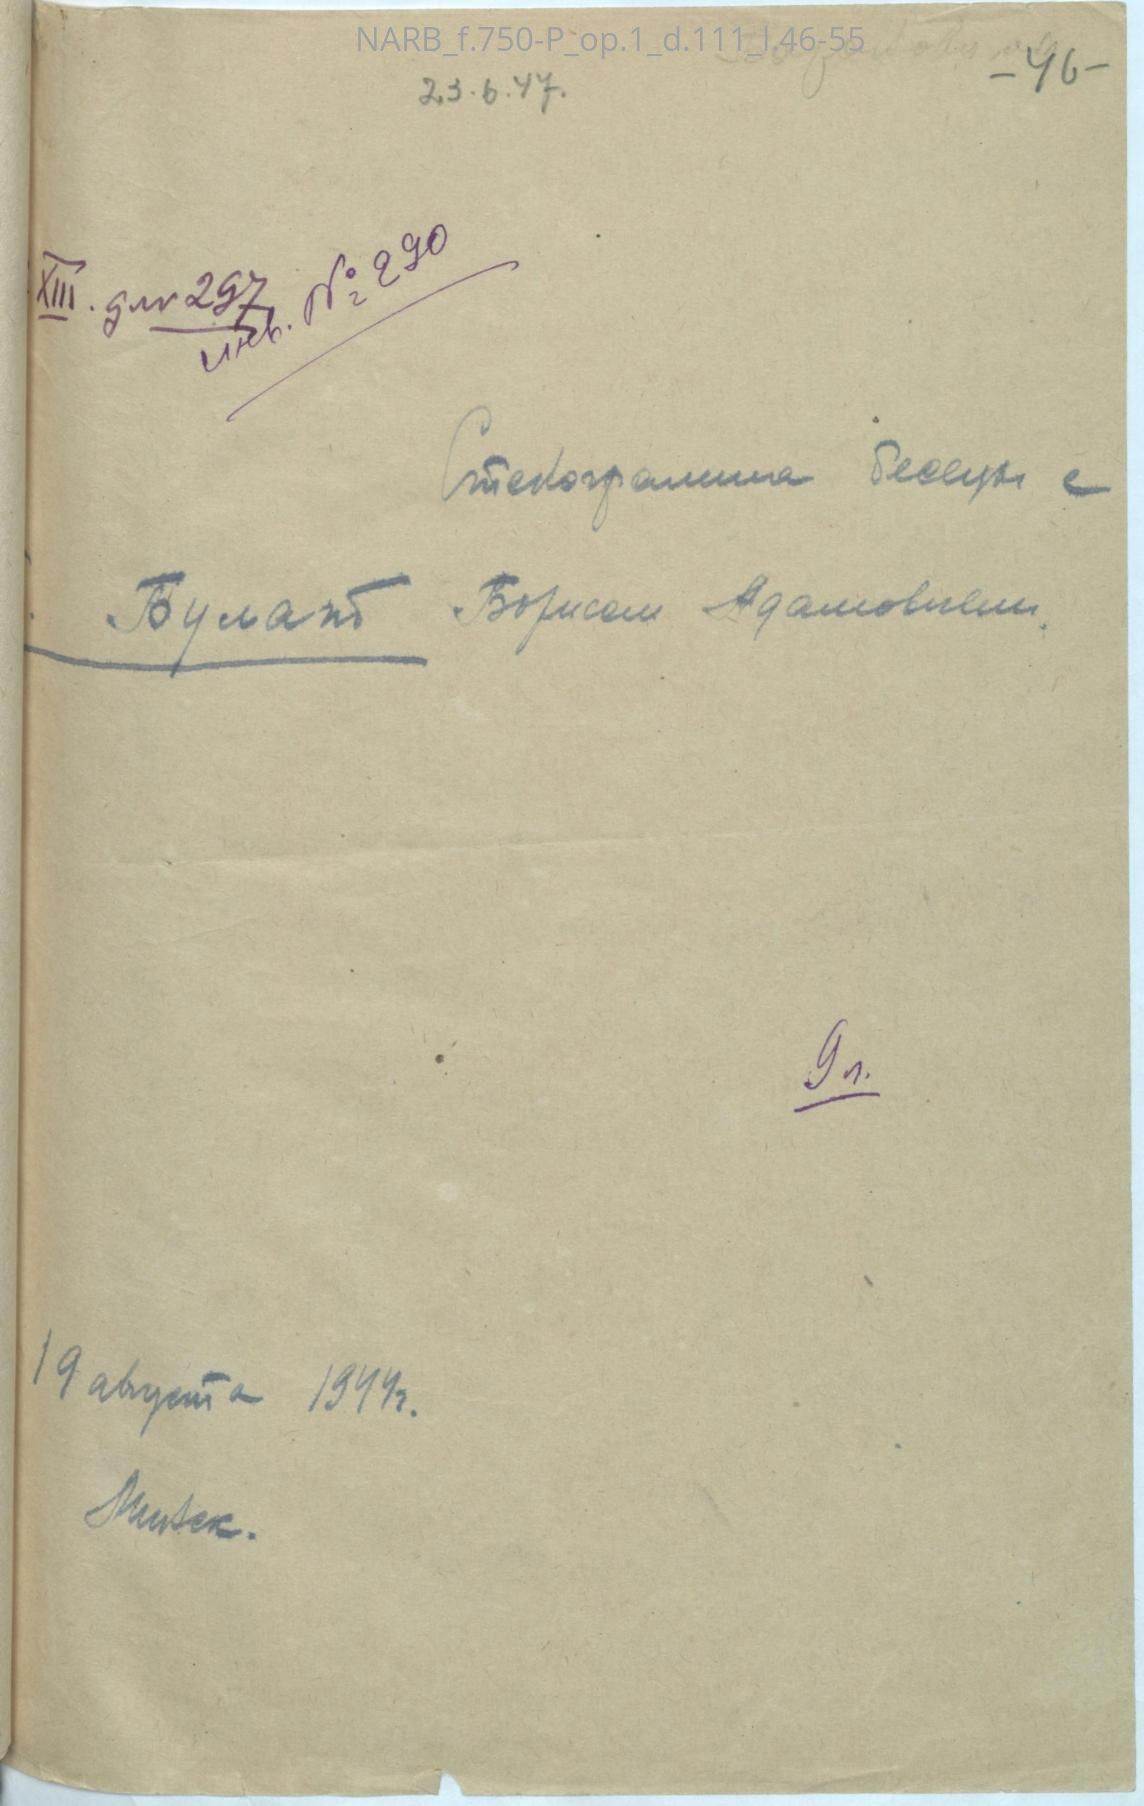 NARB_f.750-P_op.1_d.111_l.46-55
-46-
23.6.47.
XIII. 297
инв. № 290
Стенограмма беседы с
Булат Борисом Адамовичем.
9 л.
19 августа 1944г.
Минск.